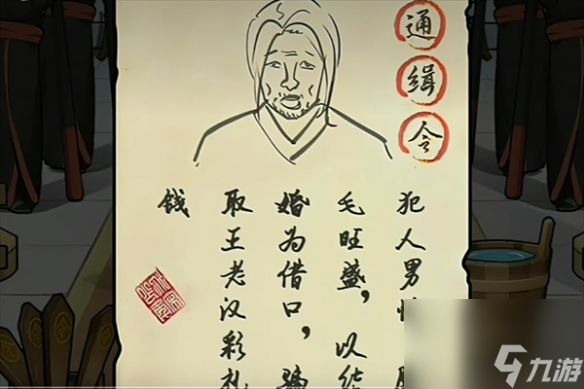 通缉令
犯人男
毛旺盛，以结
婚为借口，骗
取王老汉彩礼
钱
九游